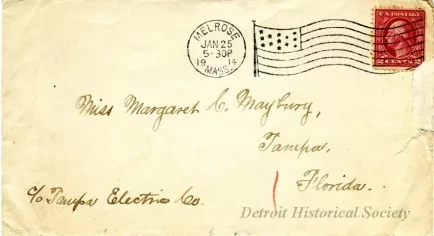 MELROSE
JAN 25
5-30P
1914
MASS.
U.S. POSTAGE
2 CENTS 2
Miss Margaret C. Maybury,
Tampa,
Florida.
c/o Tampa Electric Co.
Detroit Historical Society